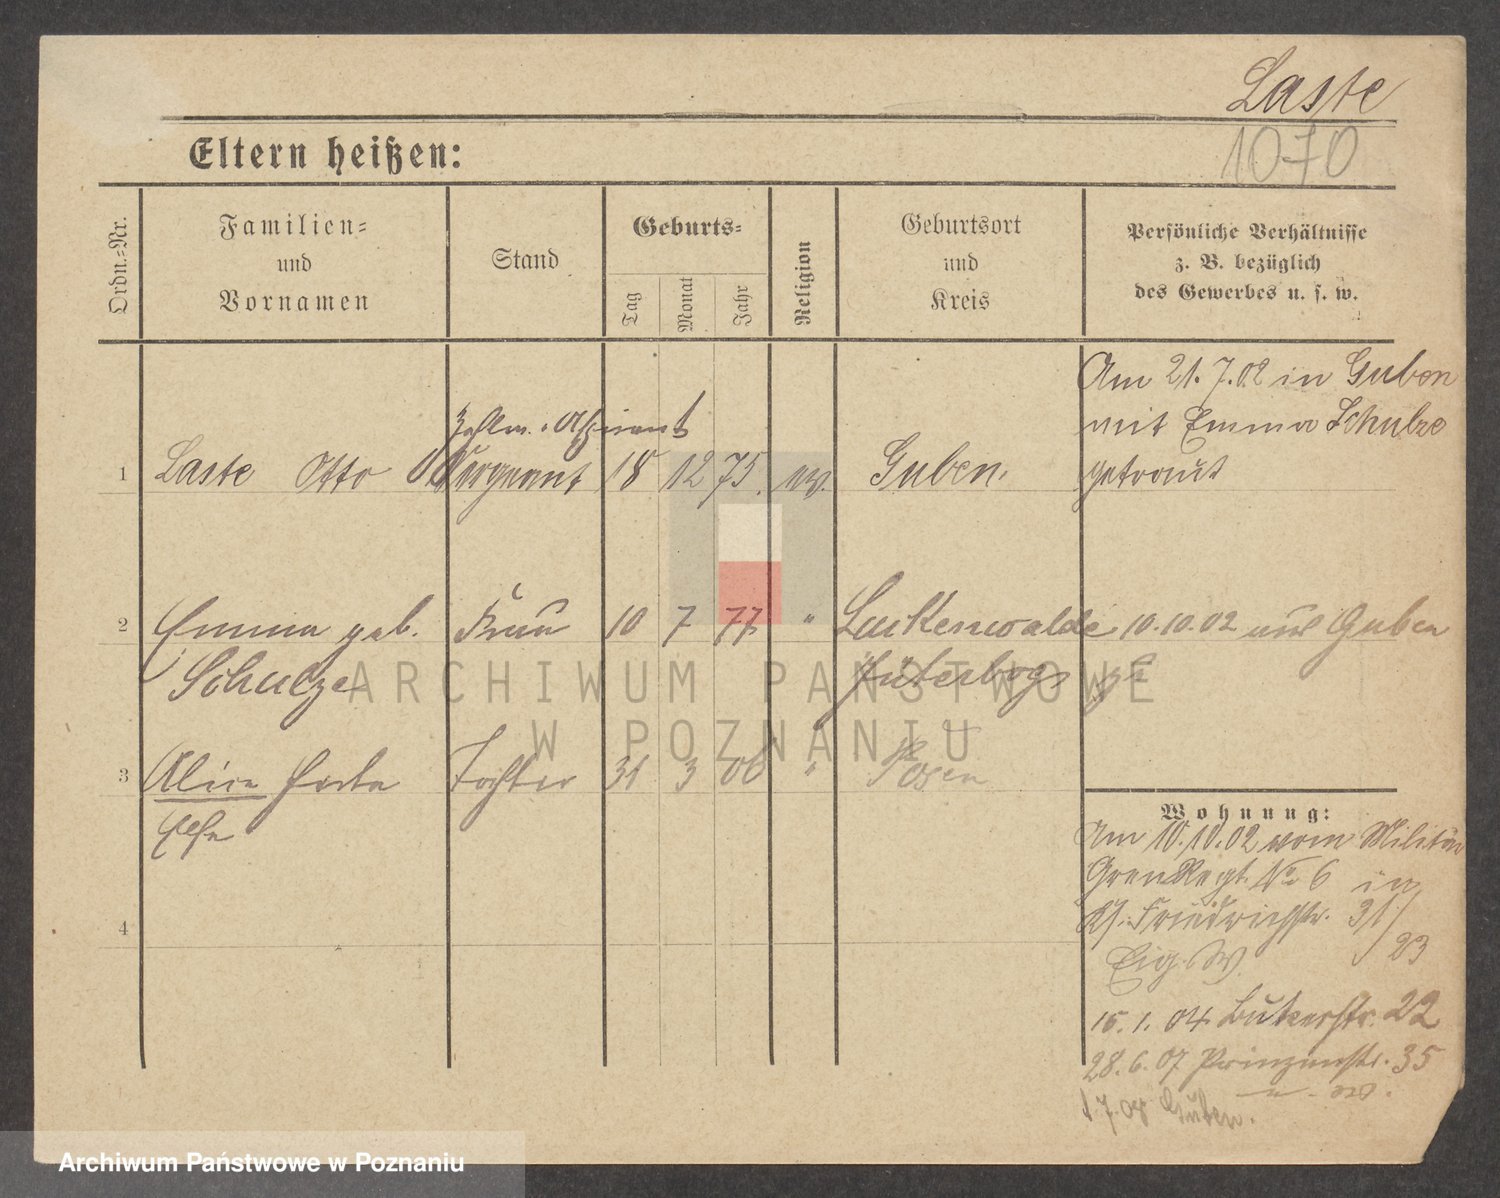 Laste
1070
Eltern heißen:
Ordn.=Nr.
Familien=
und
Vornamen
Stand
Geburts=
Tag
Monat
Jahr
Religion
Geburtsort
und
Kreis
Persönliche Verhältnisse
z. B. bezüglich
des Gewerbes u. s. w.
Am 21.7.02 in Guben
mit Emma Schulze
getraut
Zahlm.-Aspirant
1 Laste Otto Sergeant 18 12 75 ev. Guben.
2 Emma geb. Frau 10 7 77 " Luckenwalde 10.10.02 aus Guben
Schulze Jüterbog
3 Alice Herta Tochter 31 3 06 " Posen
Else
4
Wohnung:
Am 10.10.02 vom Militär
Gren Regt. No 6 in
Friedrichstr. 31/
23
Eig. W.
15.1.04 Bukerstr. 22
28.6.07 Prinzenstr. 35
1.7.08 Guben.
ARCHIWUM PAŃSTWOWE
W POZNANIU
Archiwum Państwowe w Poznaniu